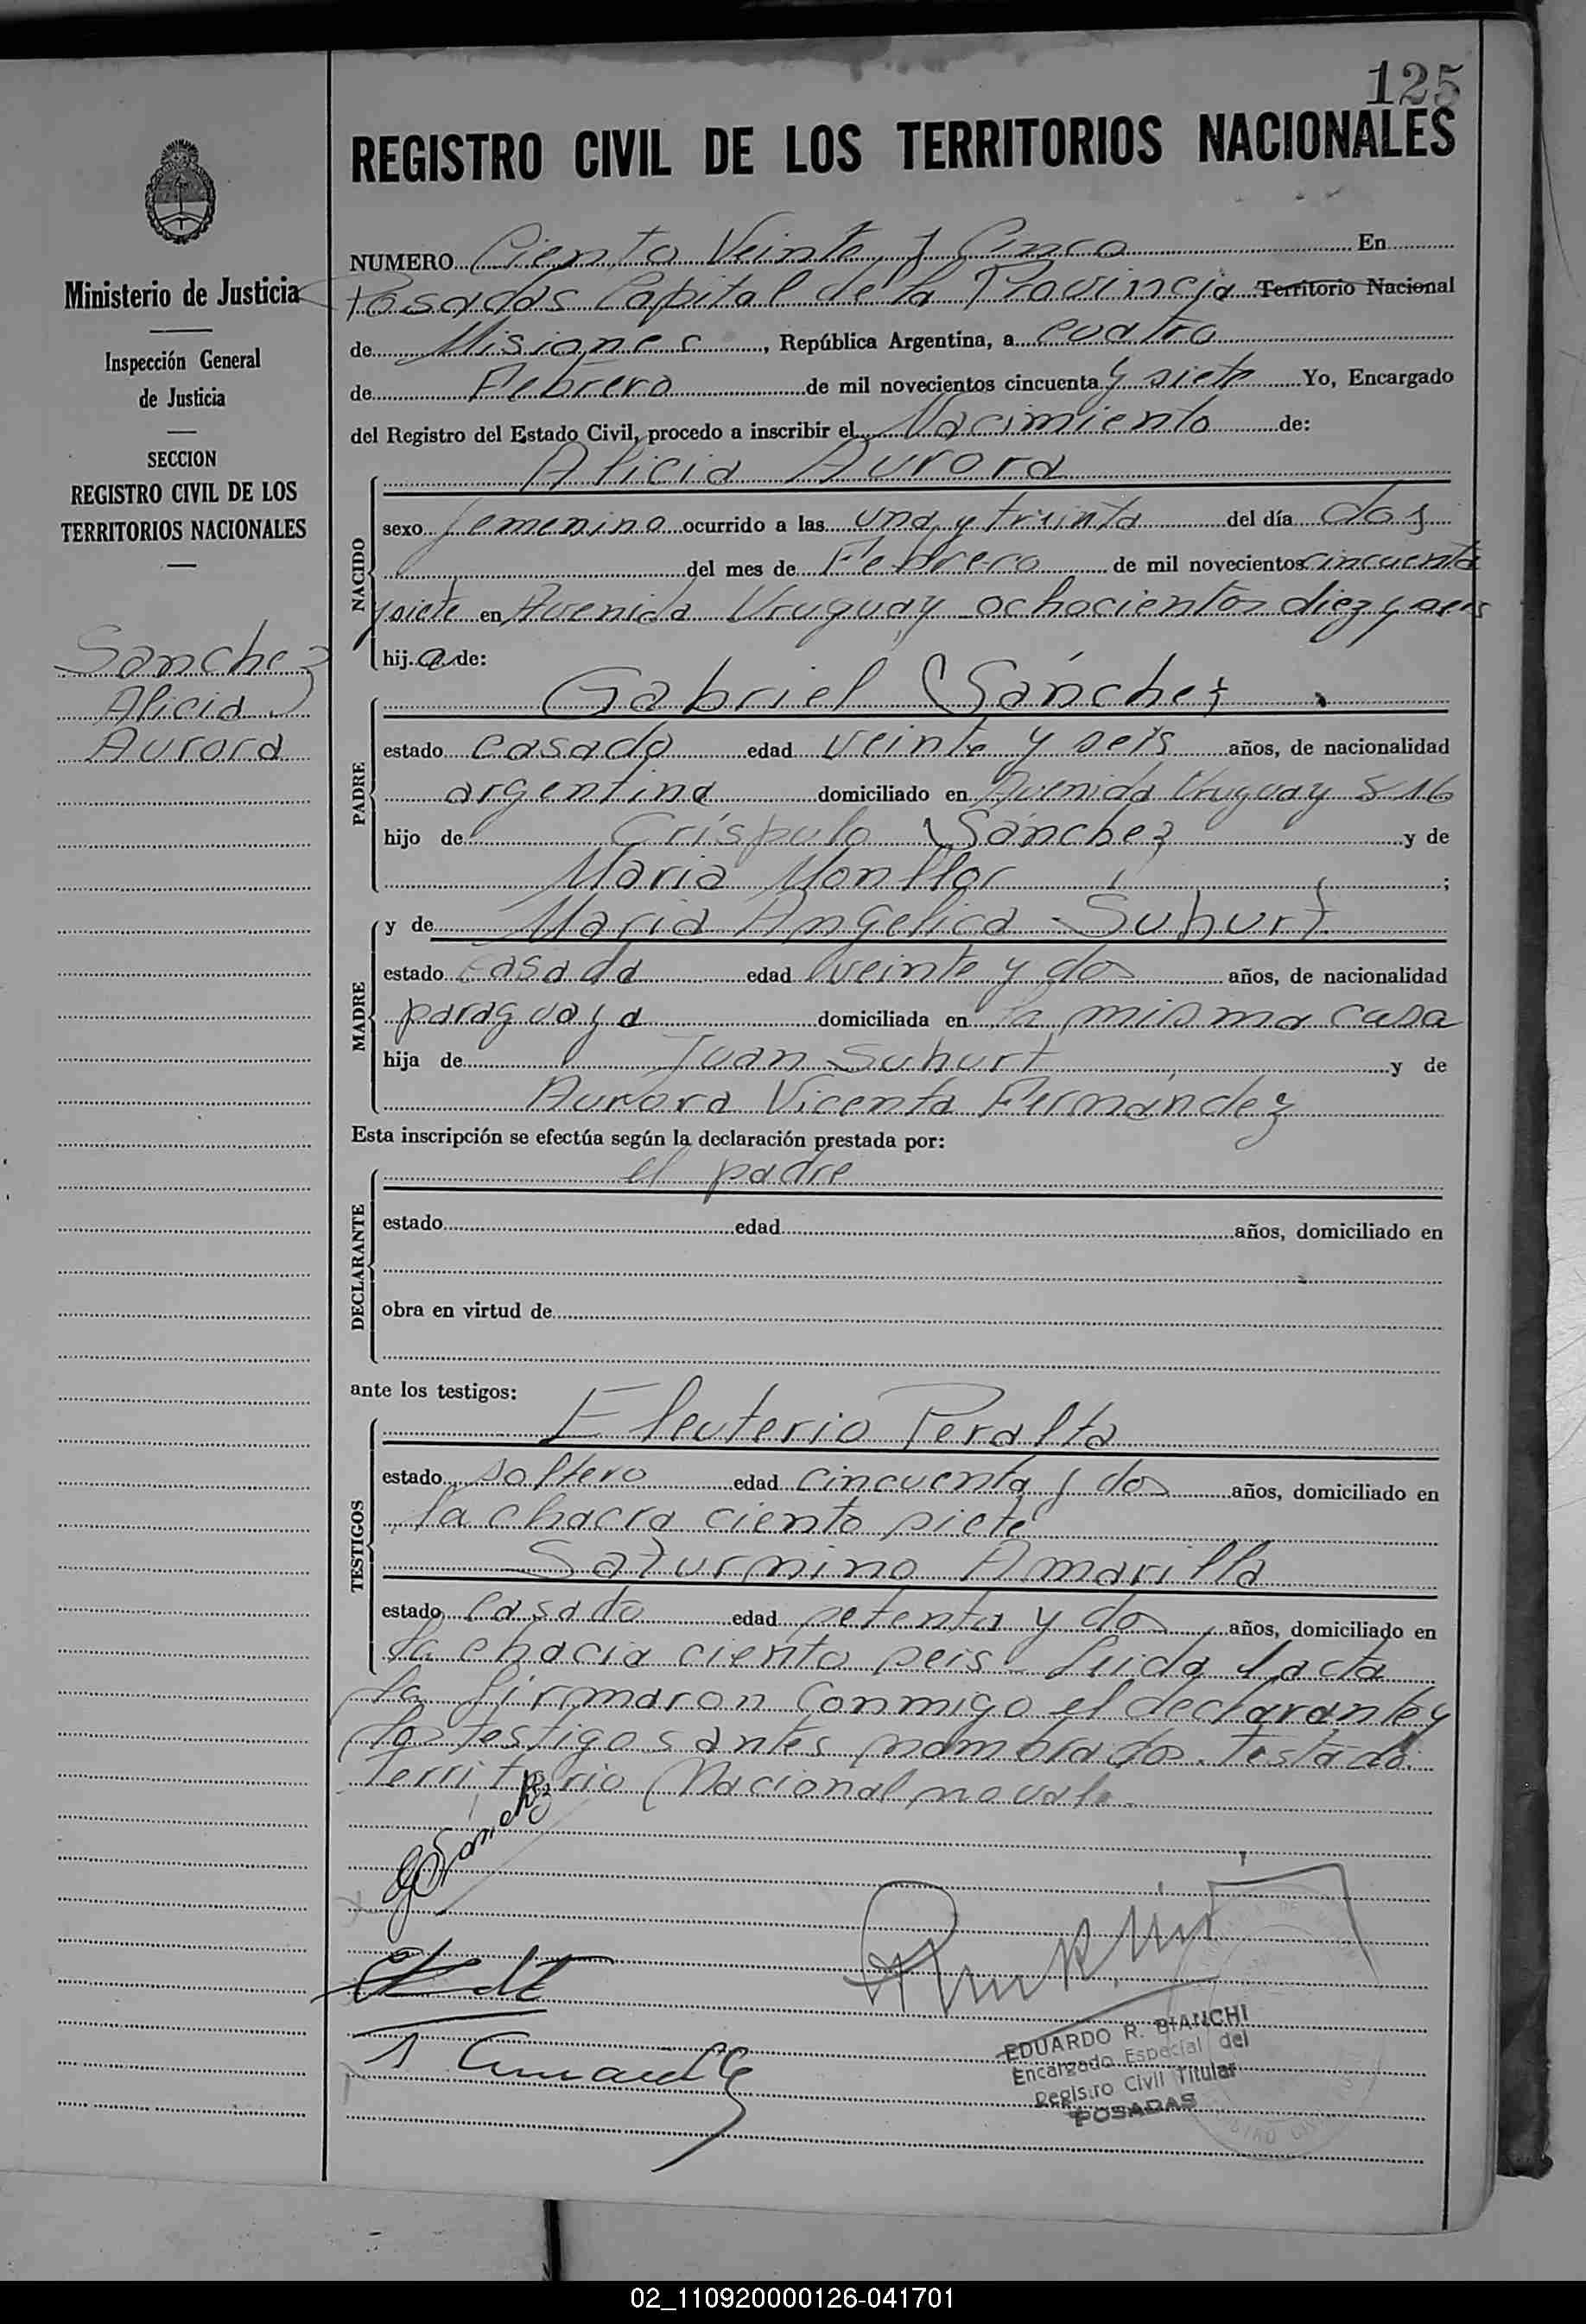 125
REGISTRO CIVIL DE LOS TERRITORIOS NACIONALES
Ministerio de Justicia
Inspección General
de Justicia
SECCION
REGISTRO CIVIL DE LOS
TERRITORIOS NACIONALES
Sanchez
Alicia
Aurora
NUMERO Ciento Veinte y Cinco En
Posadas Capital de la Provincia Territorio Nacional
de Misiones, República Argentina, a cuatro
de Febrero de mil novecientos cincuenta y siete Yo, Encargado
del Registro del Estado Civil, procedo a inscribir el Nacimiento de:
NACIDO
Alicia Aurora
sexo femenino ocurrido a las una y treinta del día dos
del mes de Febrero de mil novecientos cincuenta
y siete en Avenida Uruguay ochocientos diez y seis
hija de:
PADRE
Gabriel Sánchez
estado casado edad veinte y seis años, de nacionalidad
argentina domiciliado en Avenida Uruguay 816
hijo de Críspulo Sánchez y de
Maria Monflor ;
MADRE
y de Maria Angelica Suhurt
estado casada edad veinte y dos años, de nacionalidad
paraguaya domiciliada en la misma casa
hija de Juan Suhurt y de
Aurora Vicenta Fernández
Esta inscripción se efectúa según la declaración prestada por:
DECLARANTE
el padre
estado edad años, domiciliado en
obra en virtud de
ante los testigos:
TESTIGOS
Eleuterio Peralta
estado soltero edad cincuenta y dos años, domiciliado en
la chacra ciento siete
Saturnino Amarilla
estado casado edad setenta y dos años, domiciliado en
la chacra ciento seis - Leida l acta
la firmaron conmigo el declarante y
los testigos antes nombrados. Testado:
Territorio Nacional no vale.
GSanchez
EDUARDO R. BIANCHI
Encargado Especial del
Registro Civil Titular
POSADAS
02_110920000126-041701